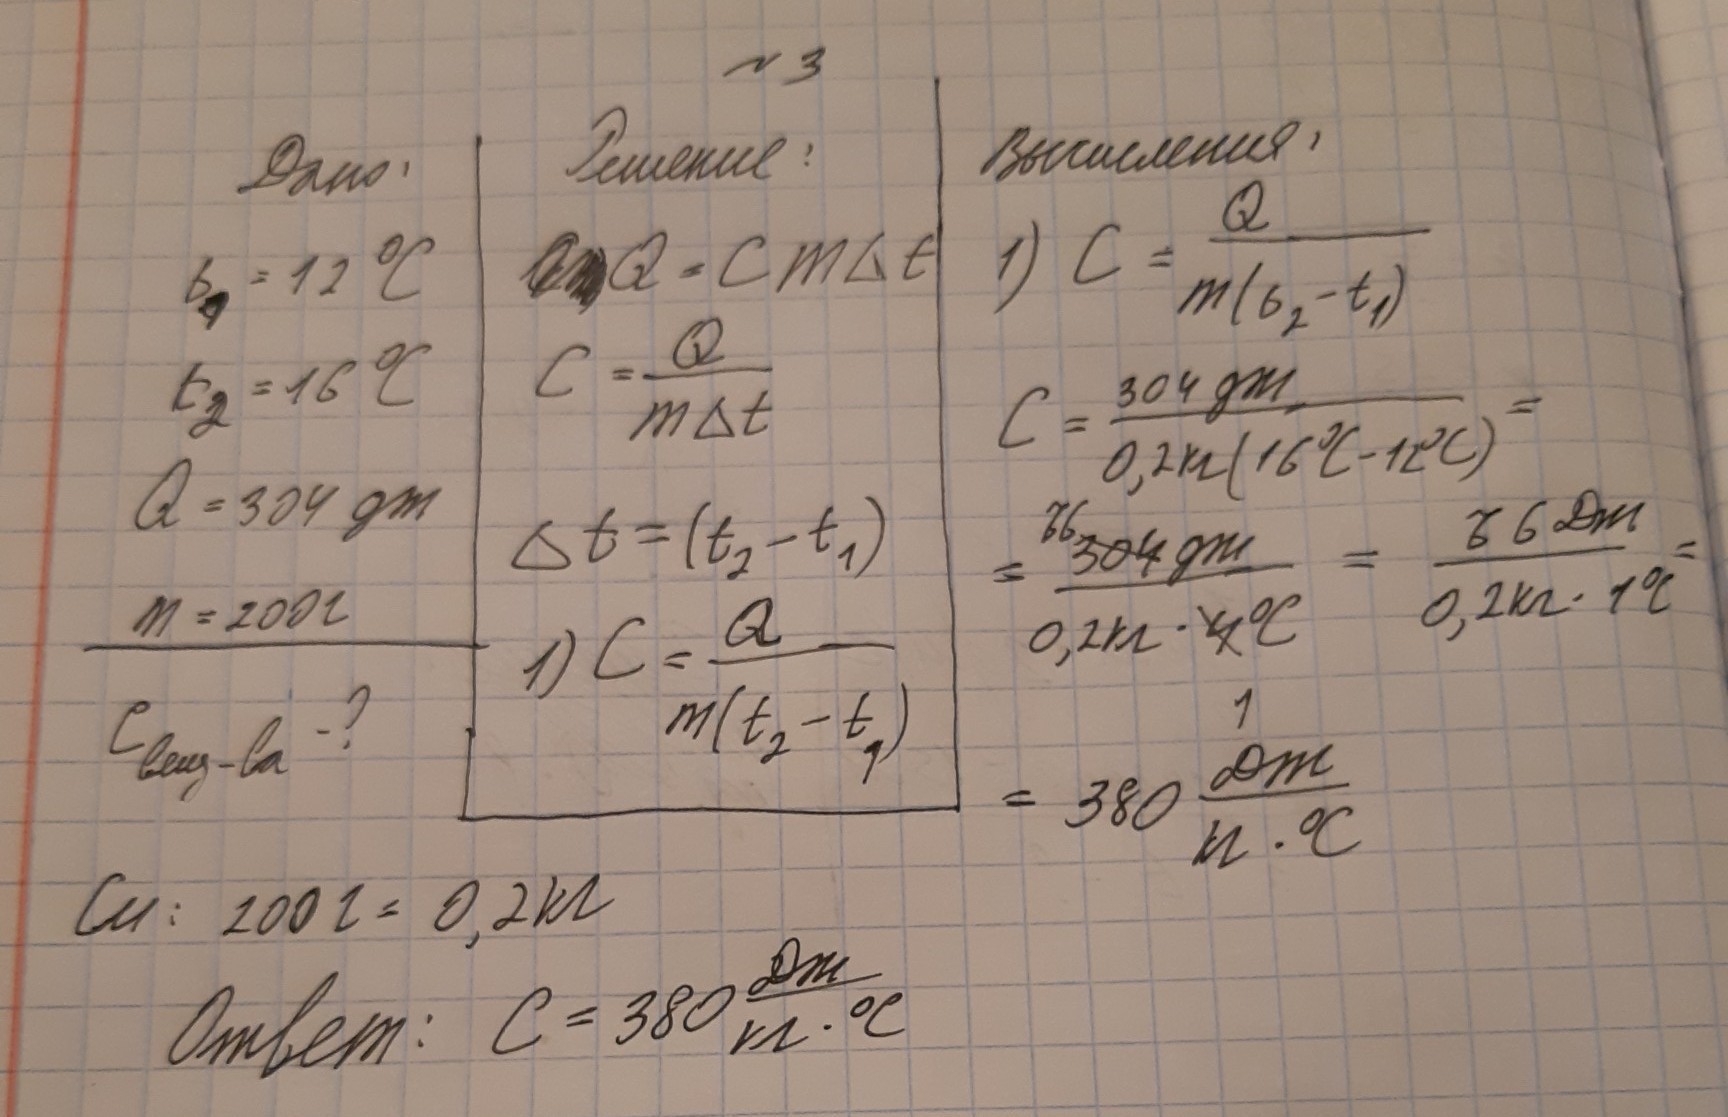 ~ 3
Дано:
t₁ = 12 °C
t₂ = 16 °C
Q = 304 дж
m = 200 г
C вещ-ва - ?
Решение:
Q = C m Δ t
C = Q / m Δ t
Δ t = (t₂ - t₁)
1) C = Q / m(t₂ - t₁)
Вычисления:
1) C = Q / m(t₂ - t₁)
C = 304 дж / 0,2кг(16°C - 12°C) =
= 76 304 дж / 0,2кг · 4°C 1 = 76 Дж / 0,2кг · 1°C =
= 380 Дж / кг · °C
Си: 200 г = 0,2кг
Ответ: C = 380 Дж / кг · °C